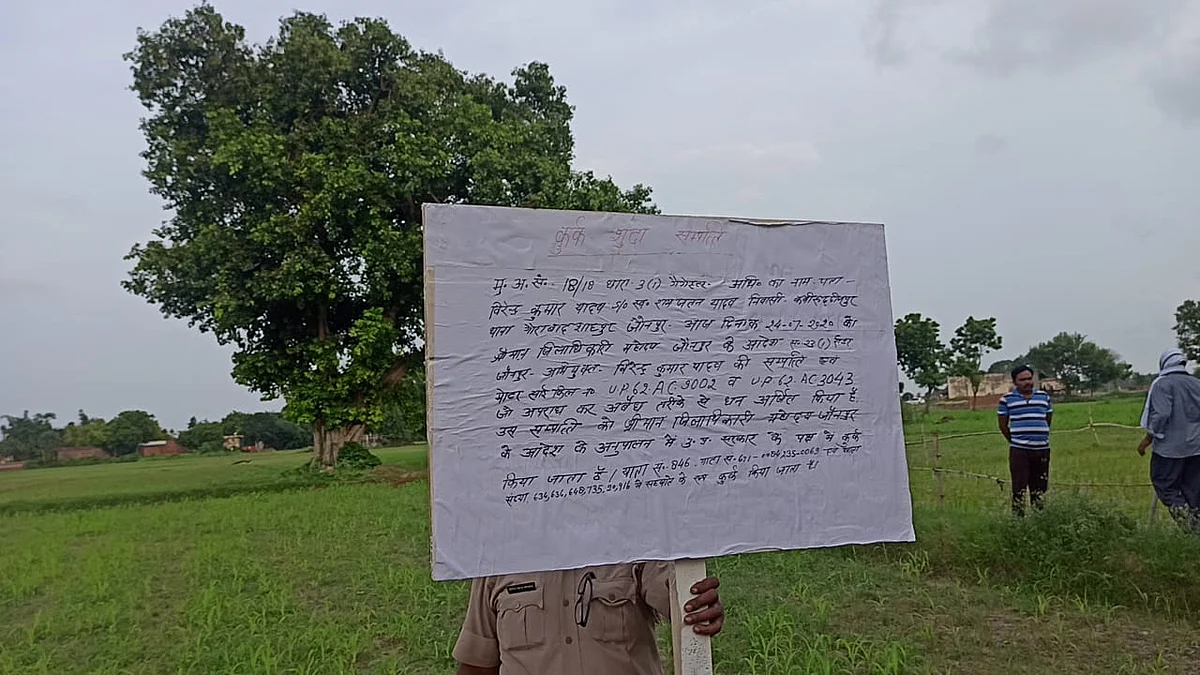 कुर्क शुदा सम्पत्ति
मु. अ. सं. 18/18 धारा 3(1) गैंगेस्टर अधि० का नाम पता -
विरेन्द्र कुमार यादव S/o स्व. राम जतन यादव निवासी कबीरुद्दीनपुर
थाना गौराबादशाहपुर जौनपुर आज दिनांक 24-07-2020 को
श्रीमान जिलाधिकारी महोदय जौनपुर के आदेश सं. 23(1)
जौनपुर अभियुक्त विरेन्द्र कुमार यादव की सम्पत्ति एवं
मोटर साईकिल न० U.P.62.AC.3002 व U.P.62.AC3043
जो अपराध कर अवैध तरीके से धन अर्जित किया है.
उस सम्पत्ति को श्रीमान जिलाधिकारी महोदय जौनपुर
के आदेश के अनुपालन में उ.प्र. सरकार के पक्ष में कुर्क
किया जाता है / खाता सं. 846 गाटा सं.
संख्या, 634, 636, 648, 735, के रूप कुर्क किया जाता है।